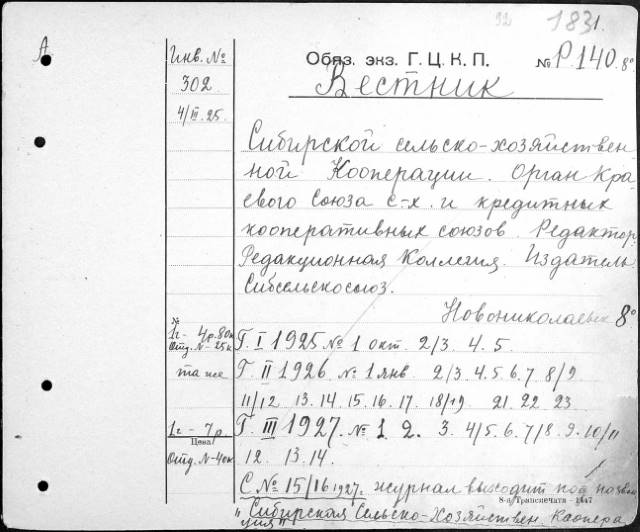 32 1831.
А
Инв. № Обяз. экз. Г. Ц. К. П. № Р.140. 8°
302 Вестник
4/III.25.
Сибирской сельско-хозяйствен
ной Кооперации. Орган Кра
евого Союза с-х. и кредитных
кооперативных союзов. Редактор:
Редакционная Коллегия. Издатель
Сибсельскосоюз.
Новониколаевск 8°
№
1г- 4р.80к Г. I 1925 № 1 окт. 2/3. 4. 5.
Отд. N-25к
та же Г. II 1926 № 1 янв 2/3. 4. 5. 6. 7. 8/9
11/12 13. 14. 15. 16. 17. 18/19 21. 22. 23
1г- 7р. Г. III 1927. № 1. 2. 3. 4/5. 6. 7/8. 9. 10/11
Цена
Отд. N-40к 12. 13. 14.
С № 15/16 1927г. журнал выходит под назван
8-я Транспечати - 1447
"Сибирская Сельско-Хозяйствен Коопера
ция"